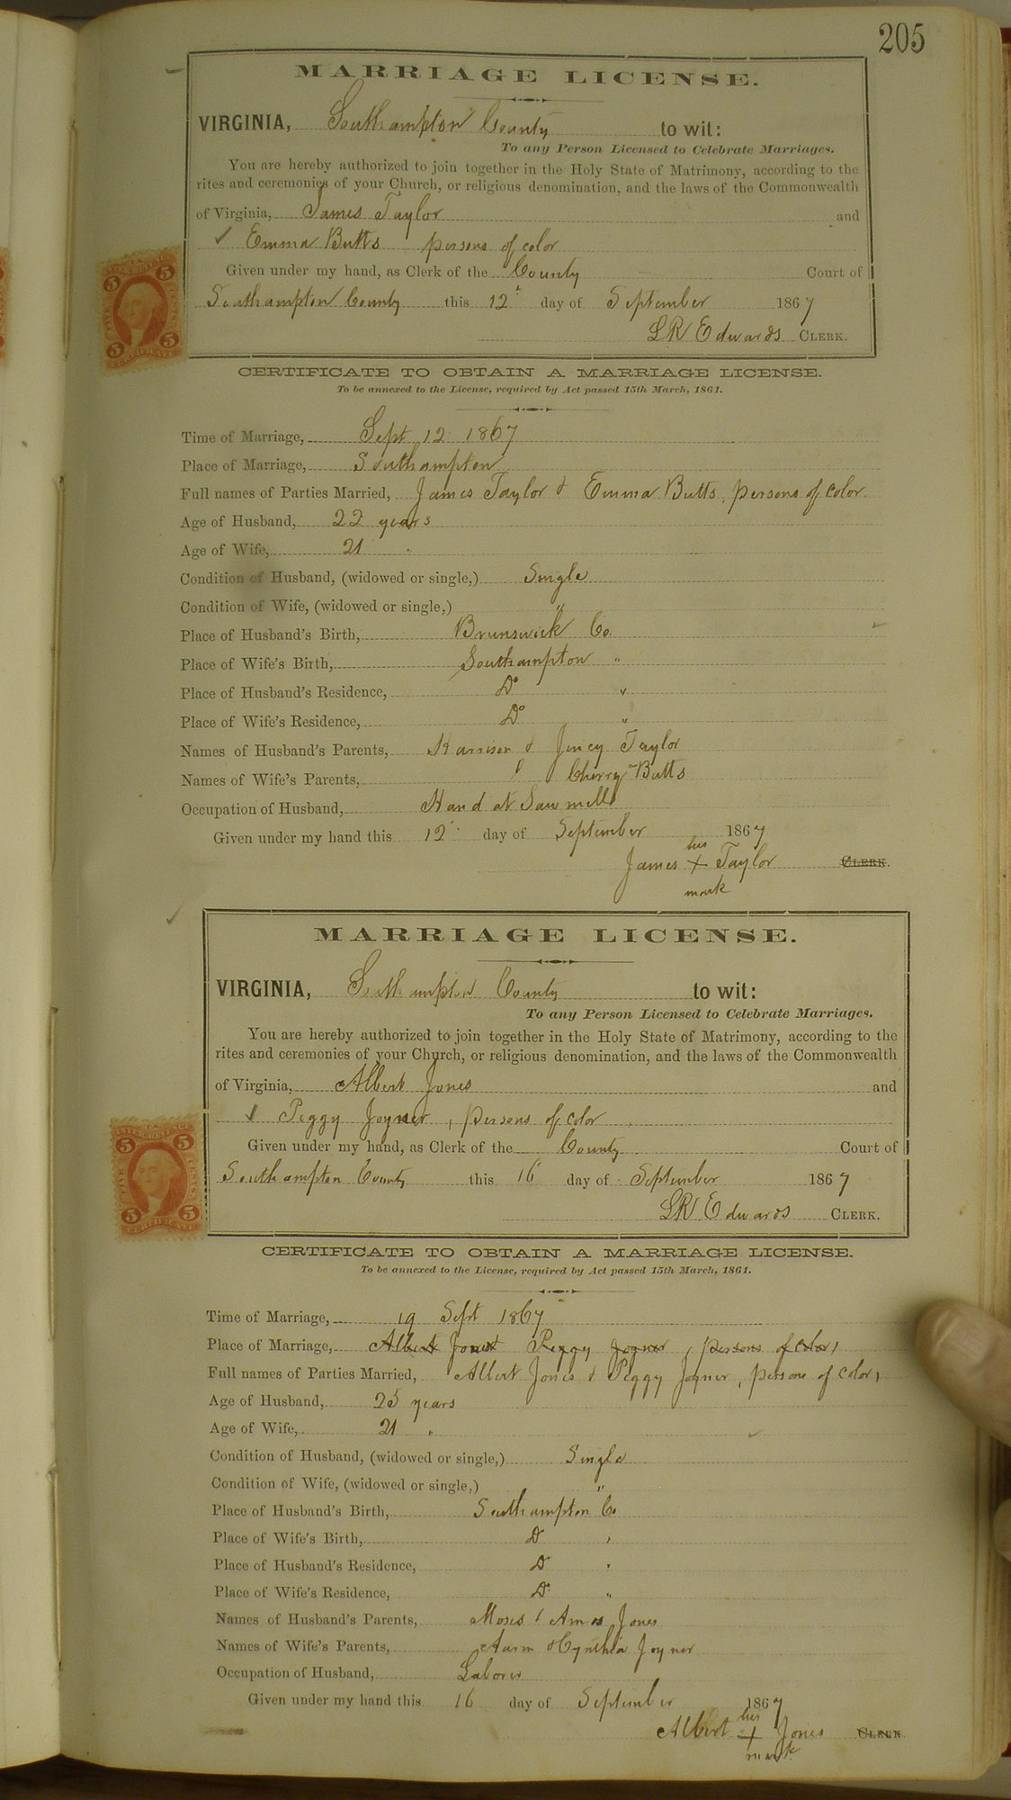 205
MARRIAGE LICENSE.
VIRGINIA, Southampton County to wit:
To any Person Licensed to Celebrate Marriages.
You are hereby authorized to join together in the Holy State of Matrimony, according to the
rites and ceremonies of your Church, or religious denomination, and the laws of the Commonwealth
of Virginia, James Taylor and
✓ Emma Butts persons of color
Given under my hand, as Clerk of the County Court of
Southampton County this 12t day of September 1867
LR Edwards CLERK.
CERTIFICATE TO OBTAIN A MARRIAGE LICENSE.
To be annexed to the License, required by Act passed 15th March, 1861.
Time of Marriage, Sept 12 1867
Place of Marriage, Southampton
Full names of Parties Married, James Taylor & Emma Butts, persons of color
Age of Husband, 22 years
Age of Wife, 21 "
Condition of Husband, (widowed or single,) Single
Condition of Wife, (widowed or single,) "
Place of Husband's Birth, Brunswick Co.
Place of Wife's Birth, Southampton "
Place of Husband's Residence, Do "
Place of Wife's Residence, Do "
Names of Husband's Parents, Harrison & Jincy Taylor
Names of Wife's Parents, Cherry Butts
Occupation of Husband, Hand at Saw mill
Given under my hand this 12 day of September 1867
his
James + Taylor CLERK.
mark
MARRIAGE LICENSE.
VIRGINIA, Southampton County to wit:
To any Person Licensed to Celebrate Marriages.
You are hereby authorized to join together in the Holy State of Matrimony, according to the
rites and ceremonies of your Church, or religious denomination, and the laws of the Commonwealth
of Virginia, Albert Jones and
✓ Peggy Joyner, persons of color
Given under my hand, as Clerk of the County Court of
Southampton County this 16 day of September 1867
LR Edwards CLERK.
CERTIFICATE TO OBTAIN A MARRIAGE LICENSE.
To be annexed to the License, required by Act passed 15th March, 1861.
Time of Marriage, 19 Sept 1867
Place of Marriage, Albert Jones & Peggy Joyner, persons of color,
Full names of Parties Married, Albert Jones & Peggy Joyner, persons of color,
Age of Husband, 25 years
Age of Wife, 21 "
Condition of Husband, (widowed or single,) Single
Condition of Wife, (widowed or single,) "
Place of Husband's Birth, Southampton Co
Place of Wife's Birth, Do "
Place of Husband's Residence, Do "
Place of Wife's Residence, Do "
Names of Husband's Parents, Moses & Jones
Names of Wife's Parents, & Cynthia Joyner
Occupation of Husband, Laborer
Given under my hand this 16 day of September 1867
his
Albert + Jones CLERK
mark